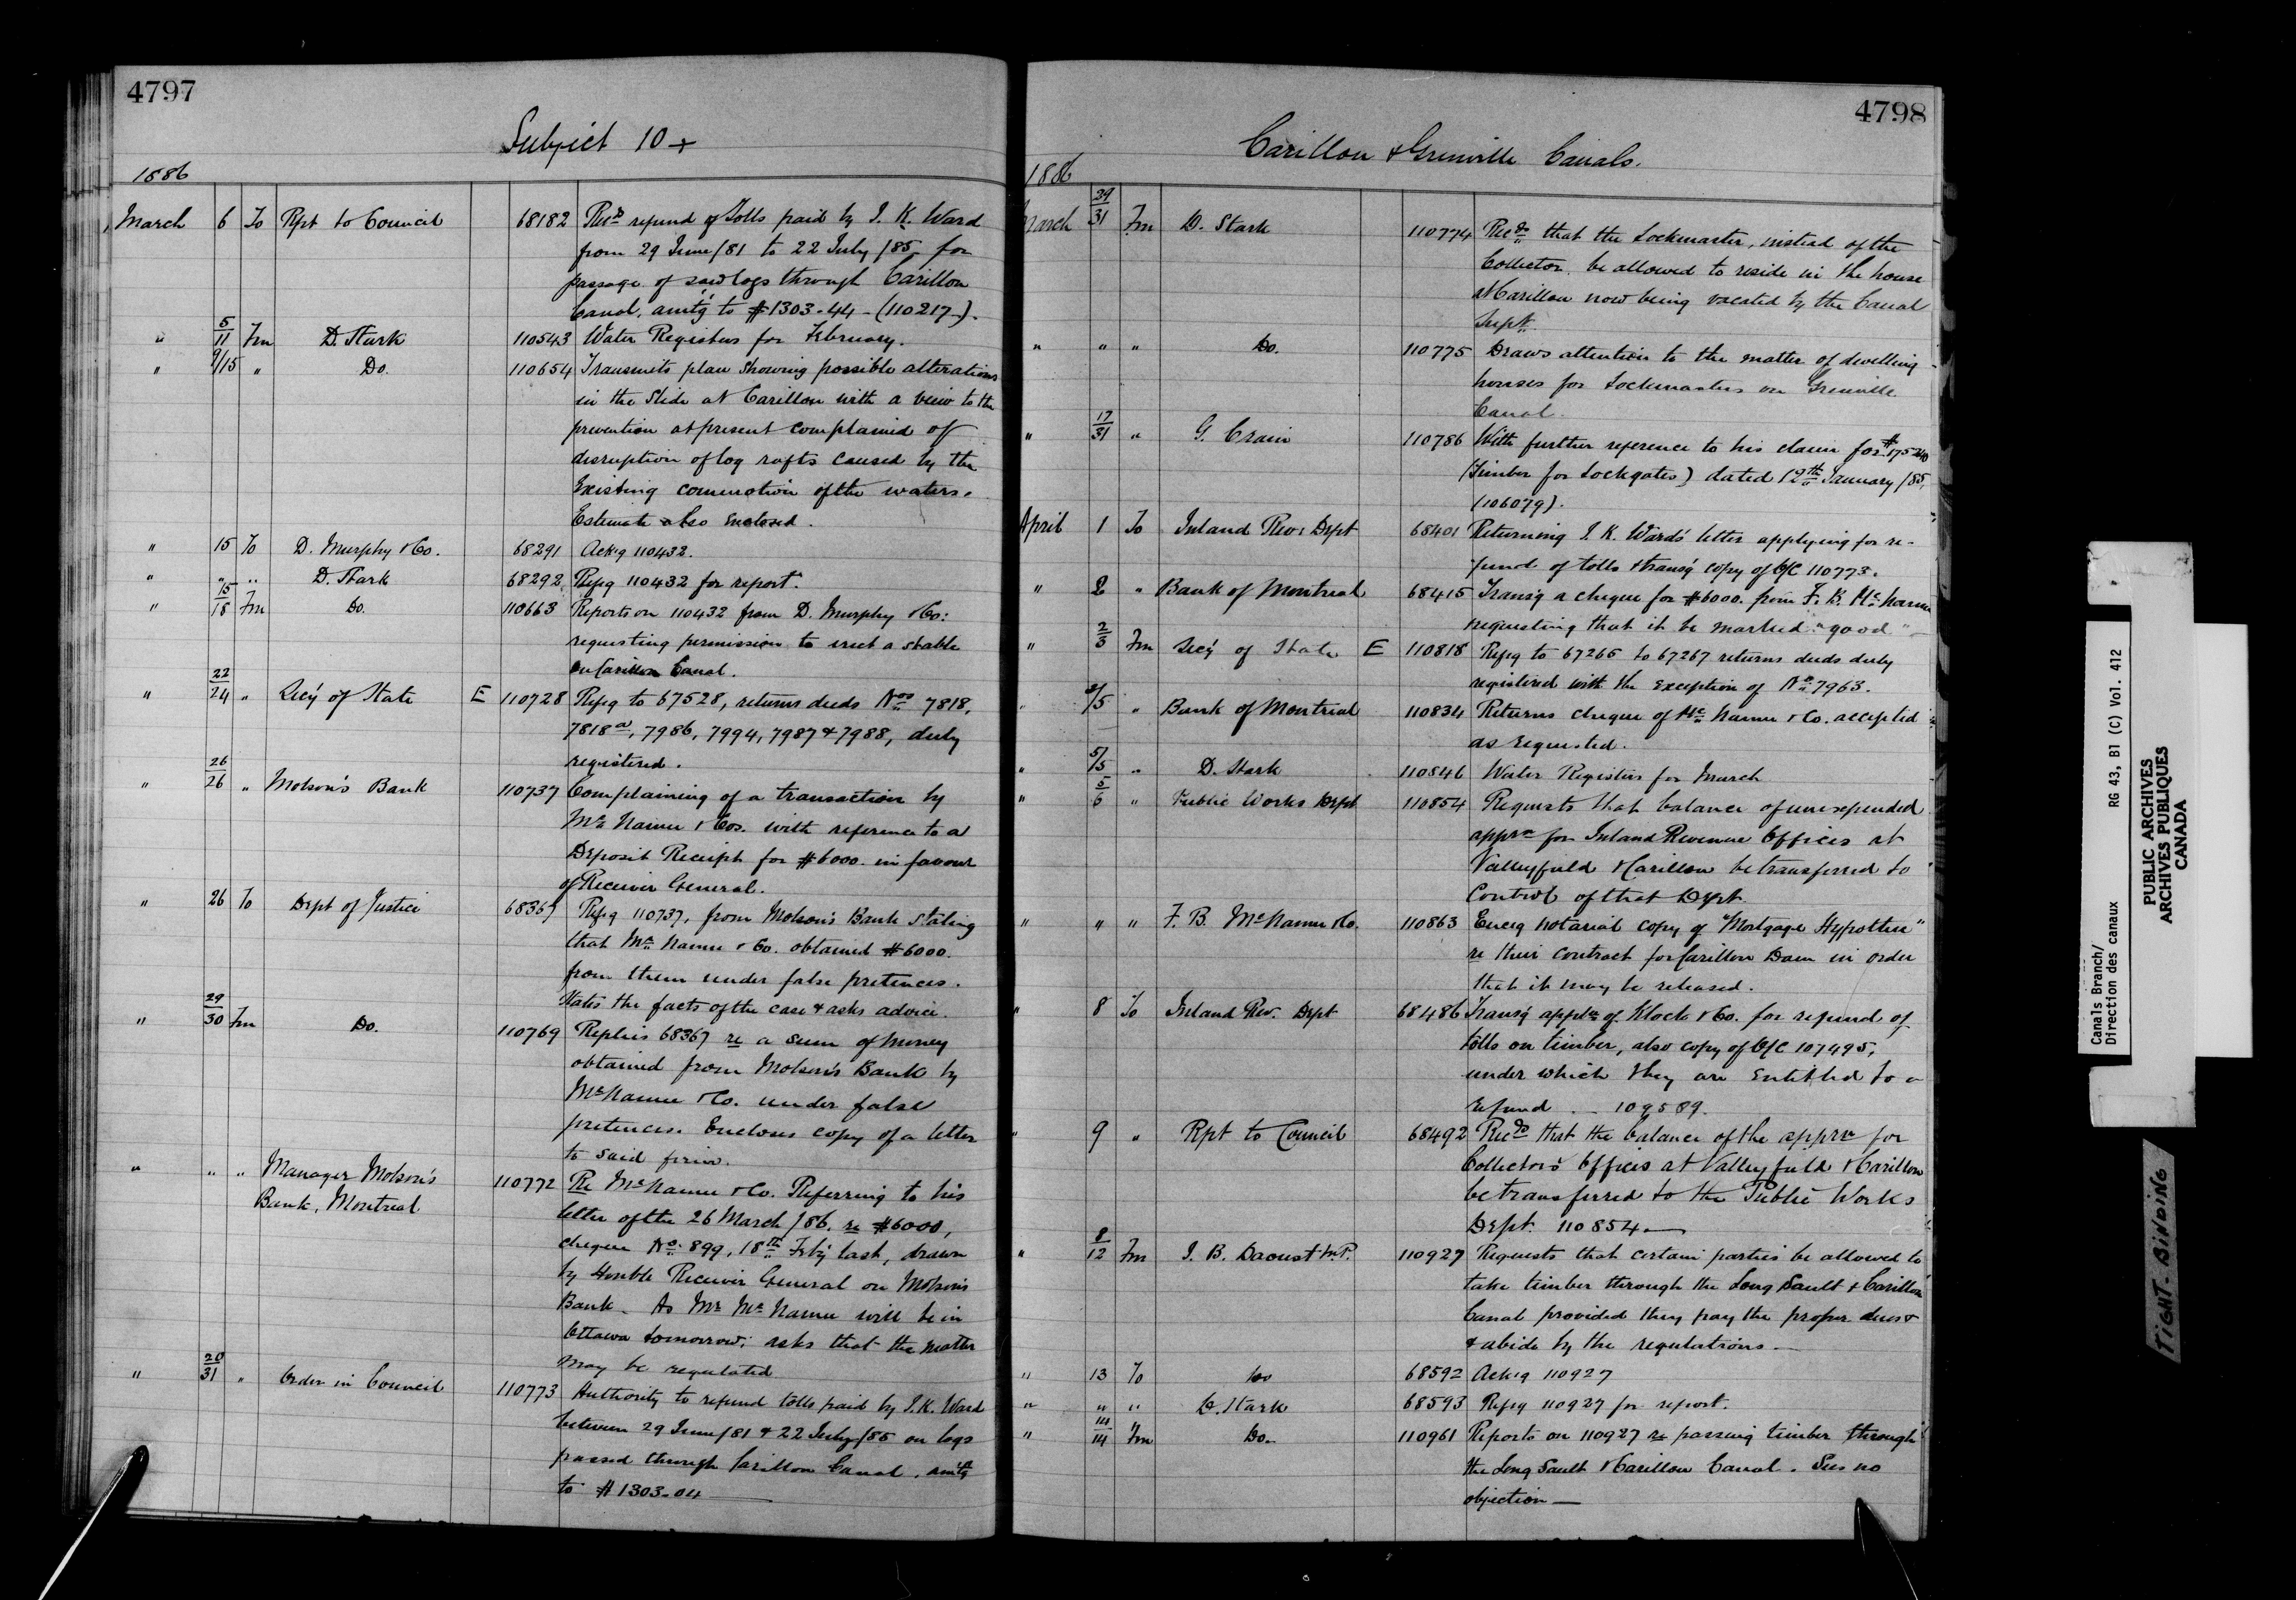 4797
Subject 10+
1886
March 6 To Rpt to Council 68182 Rec.d refund of Tolls paid by J. K. Ward
from 29 June/81 to 22 July/85 for
passage of sawlogs through Carillon
Canal, amt'g to $1303.44 - (110217).
" 5/11 Fm D. Stark 110543 Water Registers for February.
" 9/15 " Do. 110654 Transmits plan showing possible alterations
in the Slide at Carillon with a view to the
prevention at present complained of
disruption of log rafts caused by the
Existing commotion of the waters.
Estimate also Enclosed.
" 15 To D. Murphy & Co. 68291 Ackg 110432.
" " " D. Stark 68292 Refg 110432 for report.
" 15/18 Fm Do. 110663 Reports on 110432 from D. Murphy & Co:
requesting permission to erect a stable
on Carillon Canal.
" 22/24 " Sec'y of State E 110728 Refg to 67528, returns deeds Nos 7818,
7818a, 7986, 7994, 7987 & 7988, duly
registered.
" 26/26 " Molson's Bank 110737 Complaining of a transaction by
McNamee & Cos. with reference to a
Deposit Receipt for $6000. in favour
of Receiver General.
" 26 To Dept of Justice 68367 Refg 110737, from Molson's Bank stating
that McNamee & Co. obtained $6000.
from them under false pretences.
States the facts of the case & asks advice.
" 29/30 Fm Do. 110769 Replies 68367 re a sum of money
obtained from Molson's Bank by
McNamee & Co. under false
pretences. Encloses copy of a letter
to said firm.
" " " Manager Molson's 110772 Re McNamee & Co. Referring to his
Bank, Montreal letter of the 26 March/86. re $6000,
cheque No. 899, 18th Feb'y last, drawn
by Honble Receiver General on Molson's
Bank. As Mr McNamee will be in
Ottawa tomorrow; asks that the matter
may be regulated
" 20/31 " Order in Council 110773 Authority to refund tolls paid by J. K. Ward
between 29 June/81 & 22 July/85 on logs
passed through Carillon Canal, amt'g
to $1303.04
4798
Carillon & Grenville Canals.
1886
March 29/31 Fm D. Stark 110774 Recds that the Lockmaster, instead of the
Collector be allowed to reside in the house
at Carillon now being vacated by the Canal
Supt.
" " " Do. 110775 Draws attention to the matter of dwelling
houses for Lockmasters on Grenville
Canal.
" 17/31 " G. Crain 110786 With further reference to his claim for $175.20
(Timber for Lockgates) dated 12th January/85,
(106079).
April 1 To Inland Rev: Dept 68401 Returning J. K. Ward's letter applying for re-
fund of tolls & trans'g copy of O/C 110773.
" 2 " Bank of Montreal 68415 Trans'g a cheque for $6000. from F. B. McNamee
requesting that it be marked "good"
" 2/3 Fm Sec'y of State E 110818 Refg to 67265 to 67267 returns deeds duly
registered with the exception of No 7963.
" 3/5 " Bank of Montreal 110834 Returns cheque of McNamee & Co. accepted
as requested.
" 5/5 " D. Stark 110846 Water Registers for March
" 5/6 " Public Works Dept 110854 Requests that balance of unexpended
apprn for Inland Revenue Offices at
Valleyfield & Carillon be transferred to
control of that Dept.
" " " F. B. McNamee & Co. 110863 Encg notarial copy of "Mortgage Hypothec"
re their contract for Carillon Dam in order
that it may be released.
" 8 To Inland Rev. Dept 68486 Trans'g appln of Klock & Co. for refund of
tolls on timber, also copy of O/C 107495,
under which they are entitled to a
refund. - 109589.
" 9 " Rpt to Council 68492 Recds that the balance of the apprn for
Collectors' Offices at Valleyfield & Carillon
be transferred to the Public Works
Dept. 110854
" 8/12 Fm J. B. Daoust M.P. 110927 Requests that certain parties be allowed to
take timber through the Long Sault & Carillon
Canal provided they pay the proper dues
& abide by the regulations.
" 13 To Do 68592 Ackg 110927
" " " D. Stark 68593 Refg 110927 for report.
" 14/14 Fm Do. 110961 Reports on 110927 re passing timber through
the Long Sault & Carillon Canal. Sees no
objection
Canals Branch/
Direction des canaux RG 43, B1 (C) Vol. 412
PUBLIC ARCHIVES
ARCHIVES PUBLIQUES
CANADA
TIGHT BINDING